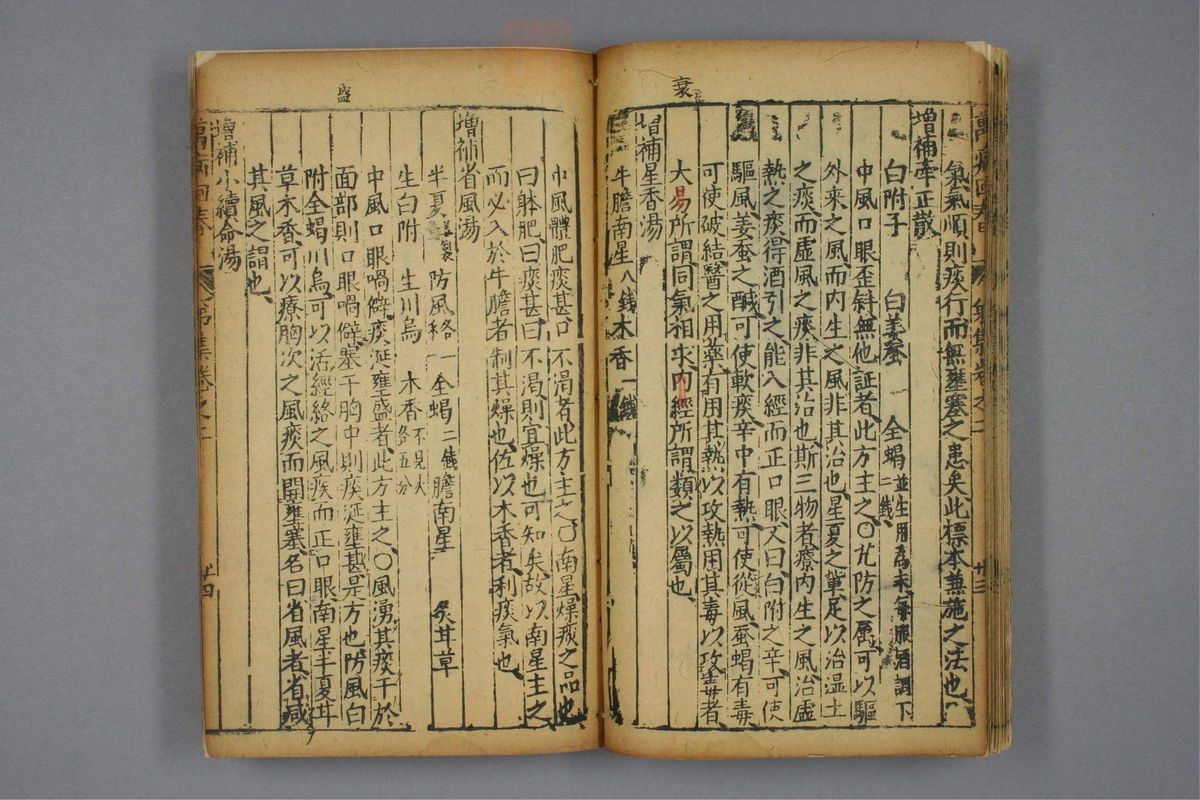 衰
氣氣順則痰行而無壅塞之患矣此標本兼施之法也
增補牽正散
白附子　白姜蚕　全蝎二錢並生用為末每服酒調下
中風口眼歪斜無他証者此方主之〇芃防之属可以驅
外來之風而內生之風非其治也星夏之輩足以治湿土
之痰而虚風之痰非其治也斯三物者療內生之風治虚
熱之痰得酒引之能入經而正口眼又曰白附之辛可使
驅風姜蚕之醎可使軟痰辛中有熱可使從風蚕蝎有毒
可使破結醫之用藥有用其熱以攻熱用其毒以攻毒者
大易所謂同氣相求內經所謂類之以屬也
增補星香湯
牛膽南星八錢木香一錢
盛
中風體肥痰甚口不渴者此方主之〇南星燥痰之品也
曰躰肥曰痰甚曰不渴則宜燥也可知矣故以南星主之
而必入於牛膽者制其燥也佐以木香者利痰氣也
增補省風湯
半夏姜製防風各一全蝎二錢膽南星　炙甘草
生白附　生川烏　木香不見火各五分
中風口眼喎僻痰涎壅盛者此方主之〇風湧其痰干於
面部則口眼喎僻塞于胸中則痰涎壅甚是方也防風白
附全蝎川烏可以活經絡之風痰而正口眼南星半夏甘
草木香可以療胸次之風痰而開壅塞名曰省風者省減
其風之謂也
增補小續命湯
萬病回春
卷之二
廿四